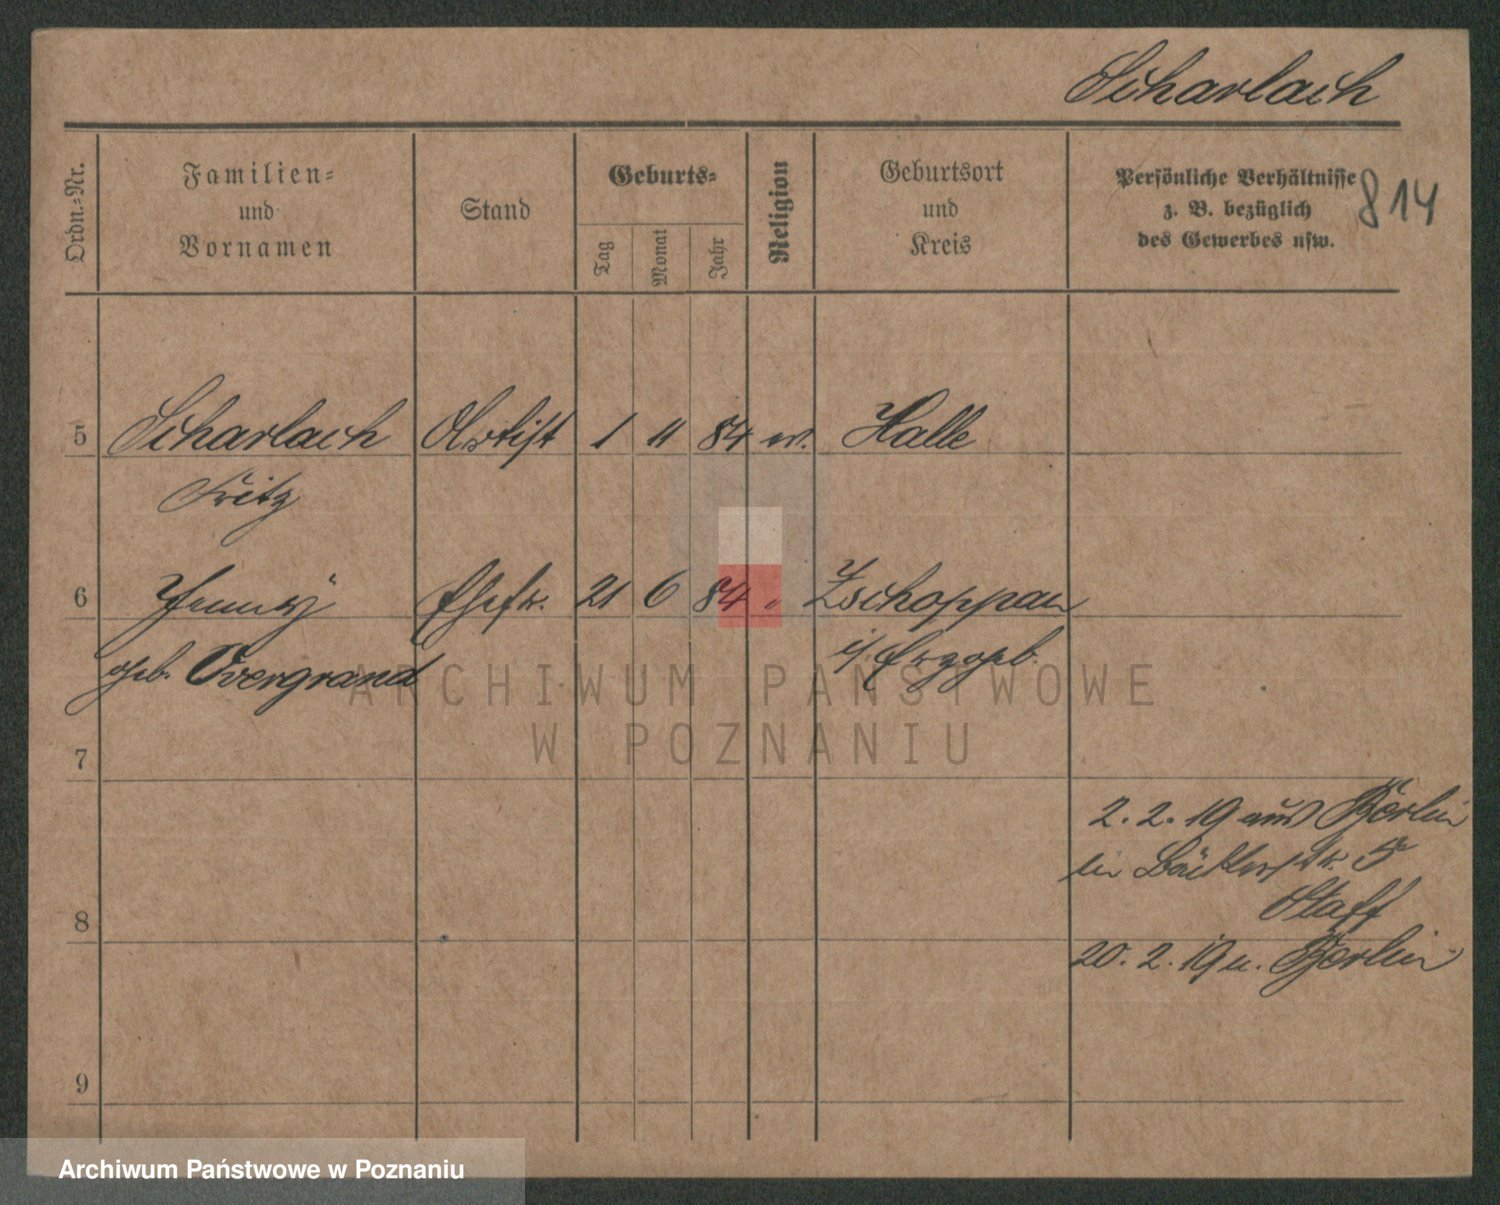 Scharlach
814
Ordn.-Nr.
Familien-
und
Vornamen
Stand
Geburts-
Tag
Monat
Jahr
Religion
Geburtsort
und
Kreis
Persönliche Verhältnisse
z. B. bezüglich
des Gewerbes usw.
5 Scharlach Artist 1 11 84 ev. Halle
Fritz
6 Jenny Ehefr. 21 6 84 " Zschoppau
geb. Overgrand i/ Erzgeb.
7
2.2.19 aus Berlin
in Bäckerstr. 5
Staff
8
20.2.19 n. Berlin
9
ARCHIWUM PAŃSTWOWE
W POZNANIU
Archiwum Państwowe w Poznaniu